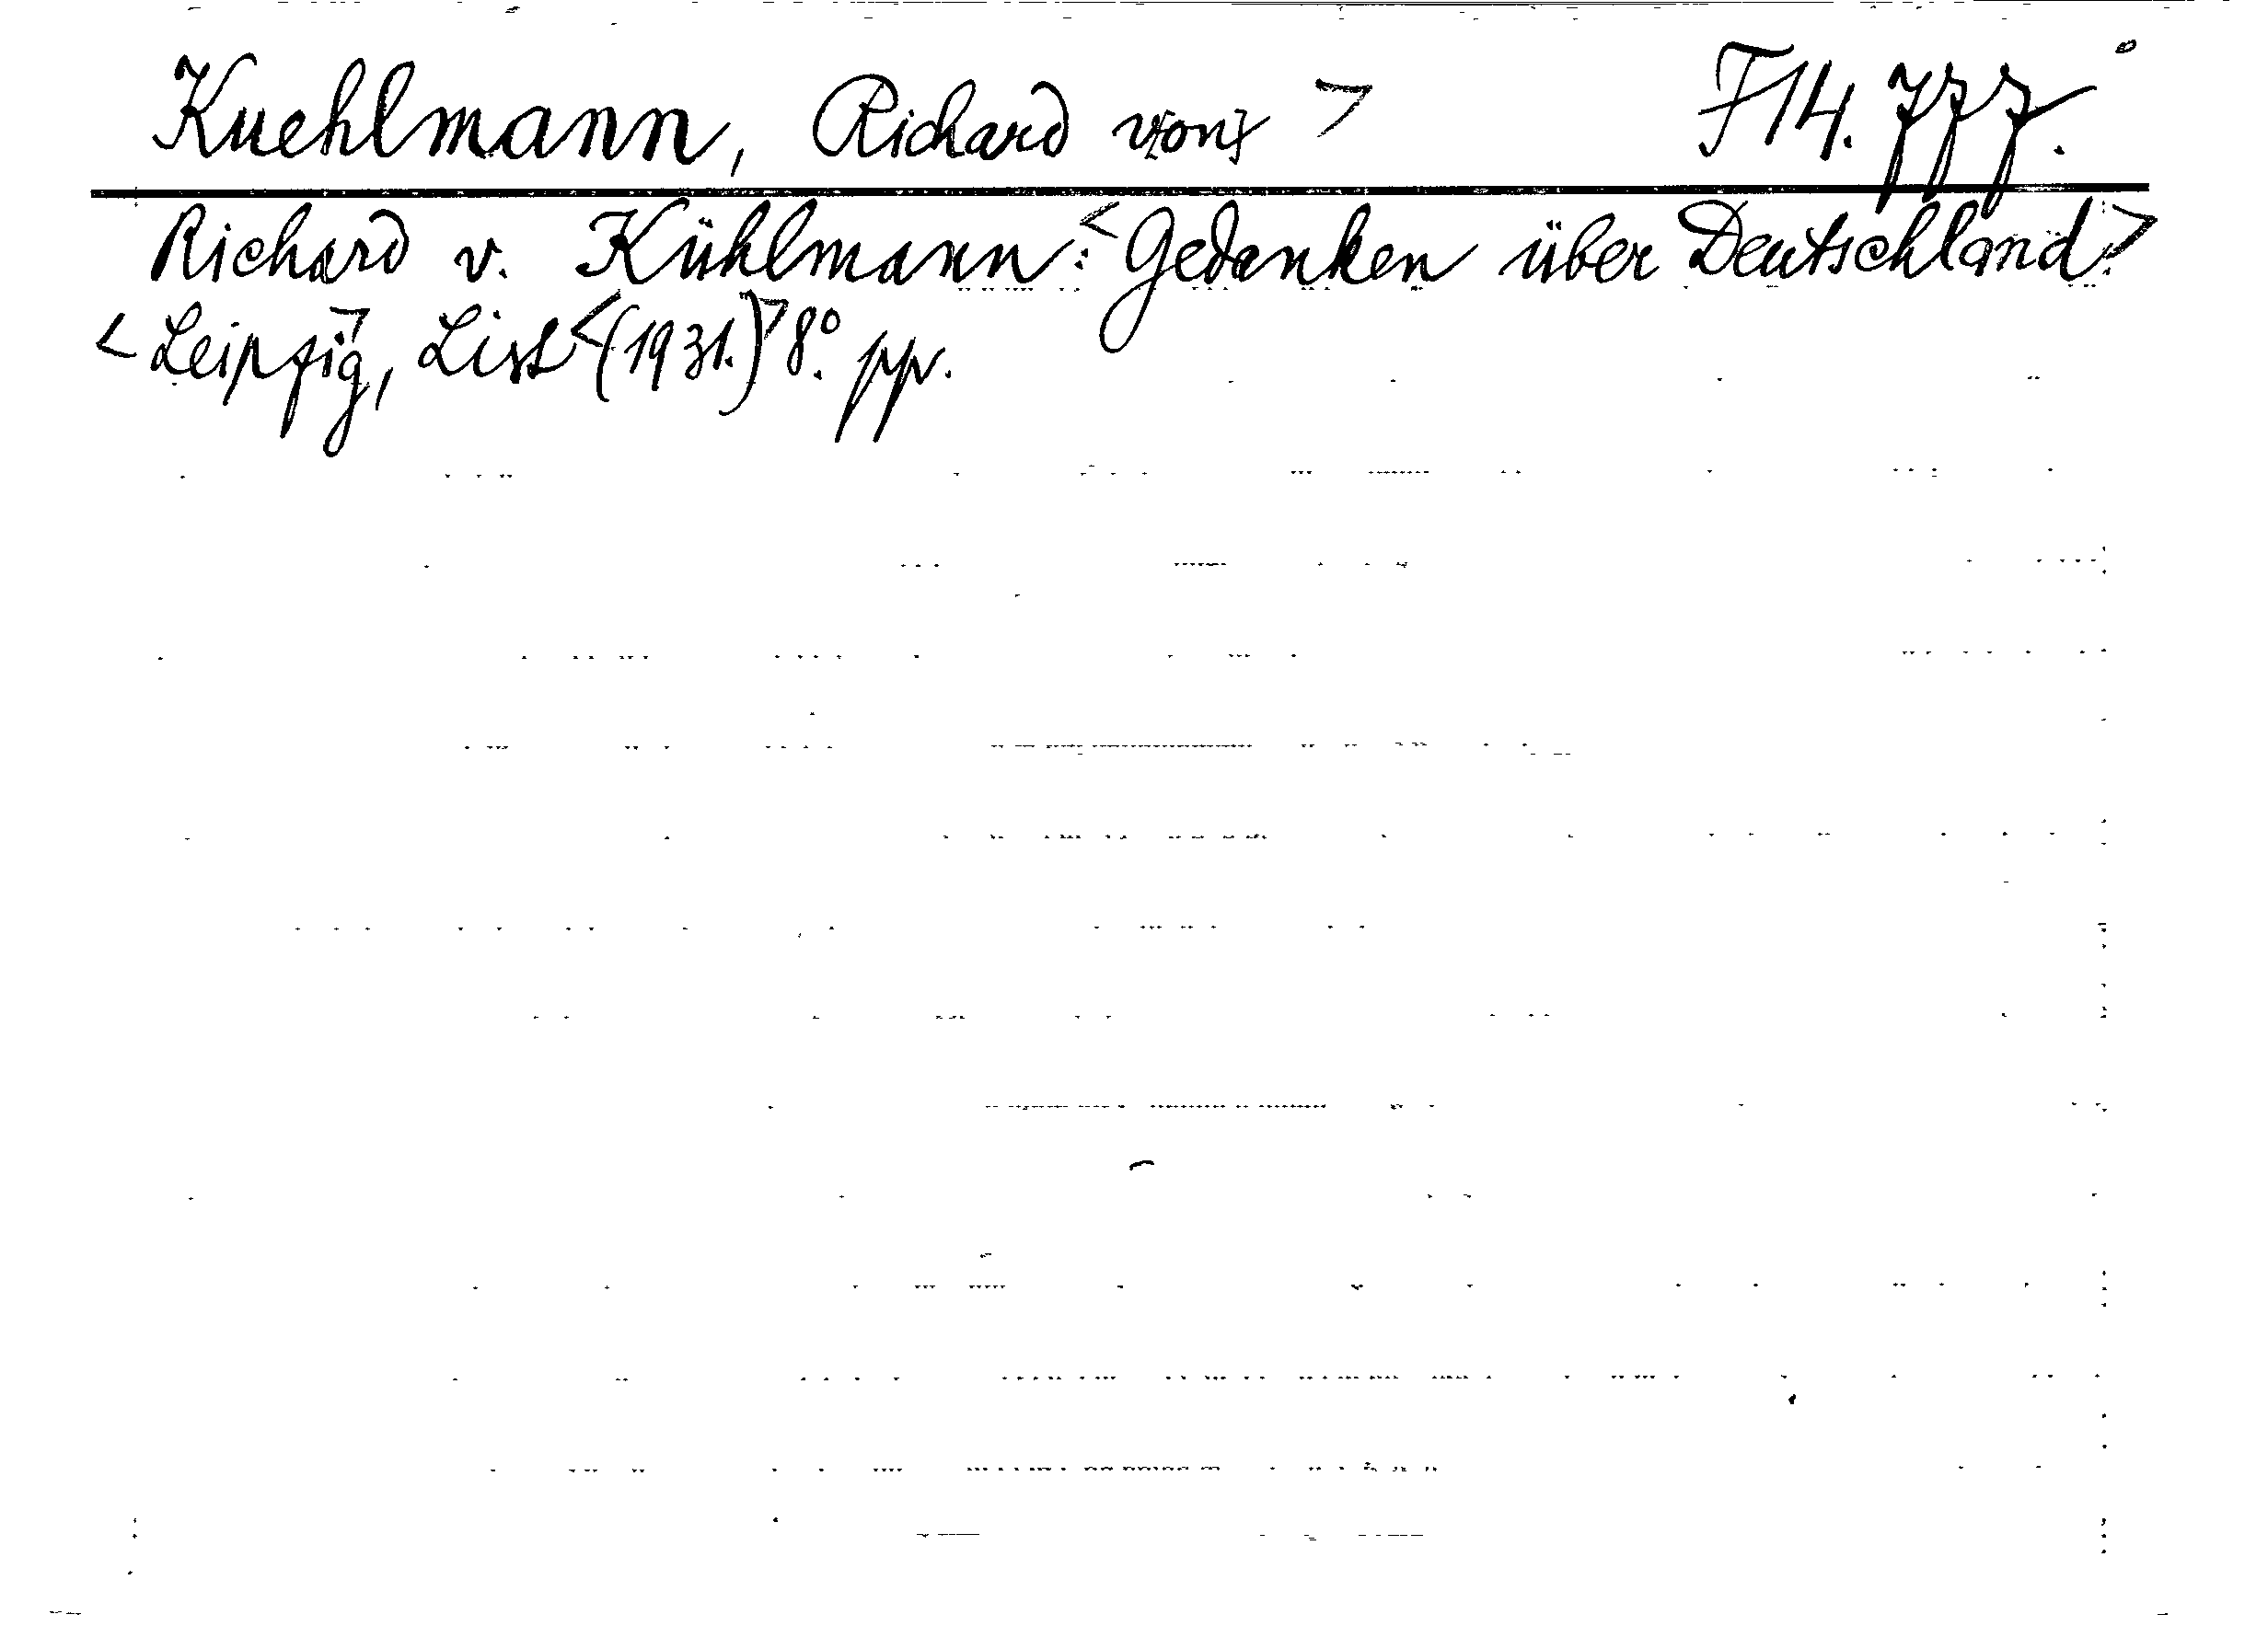 Kuehlmann, Richard von} > F14.777.
Richard v. Kühlmann: <Gedanken über Deutschland.>
<Leipzig>, List <(1931.)> 8°. pp.